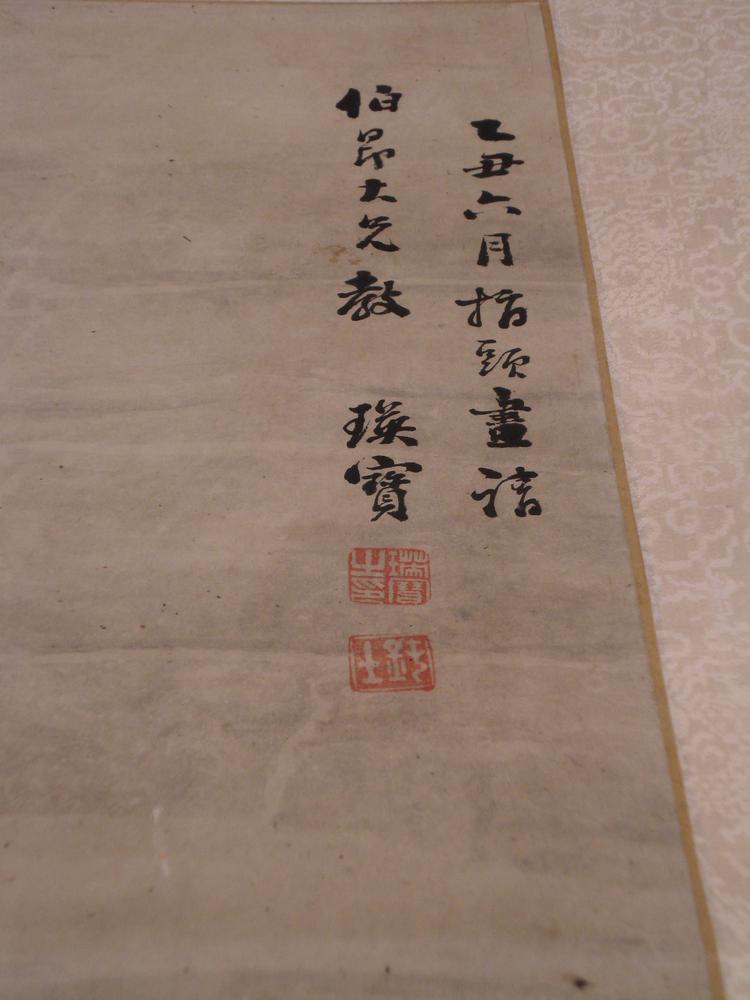 乙丑六月指頭畫請
伯昂大兄教 瑛寶